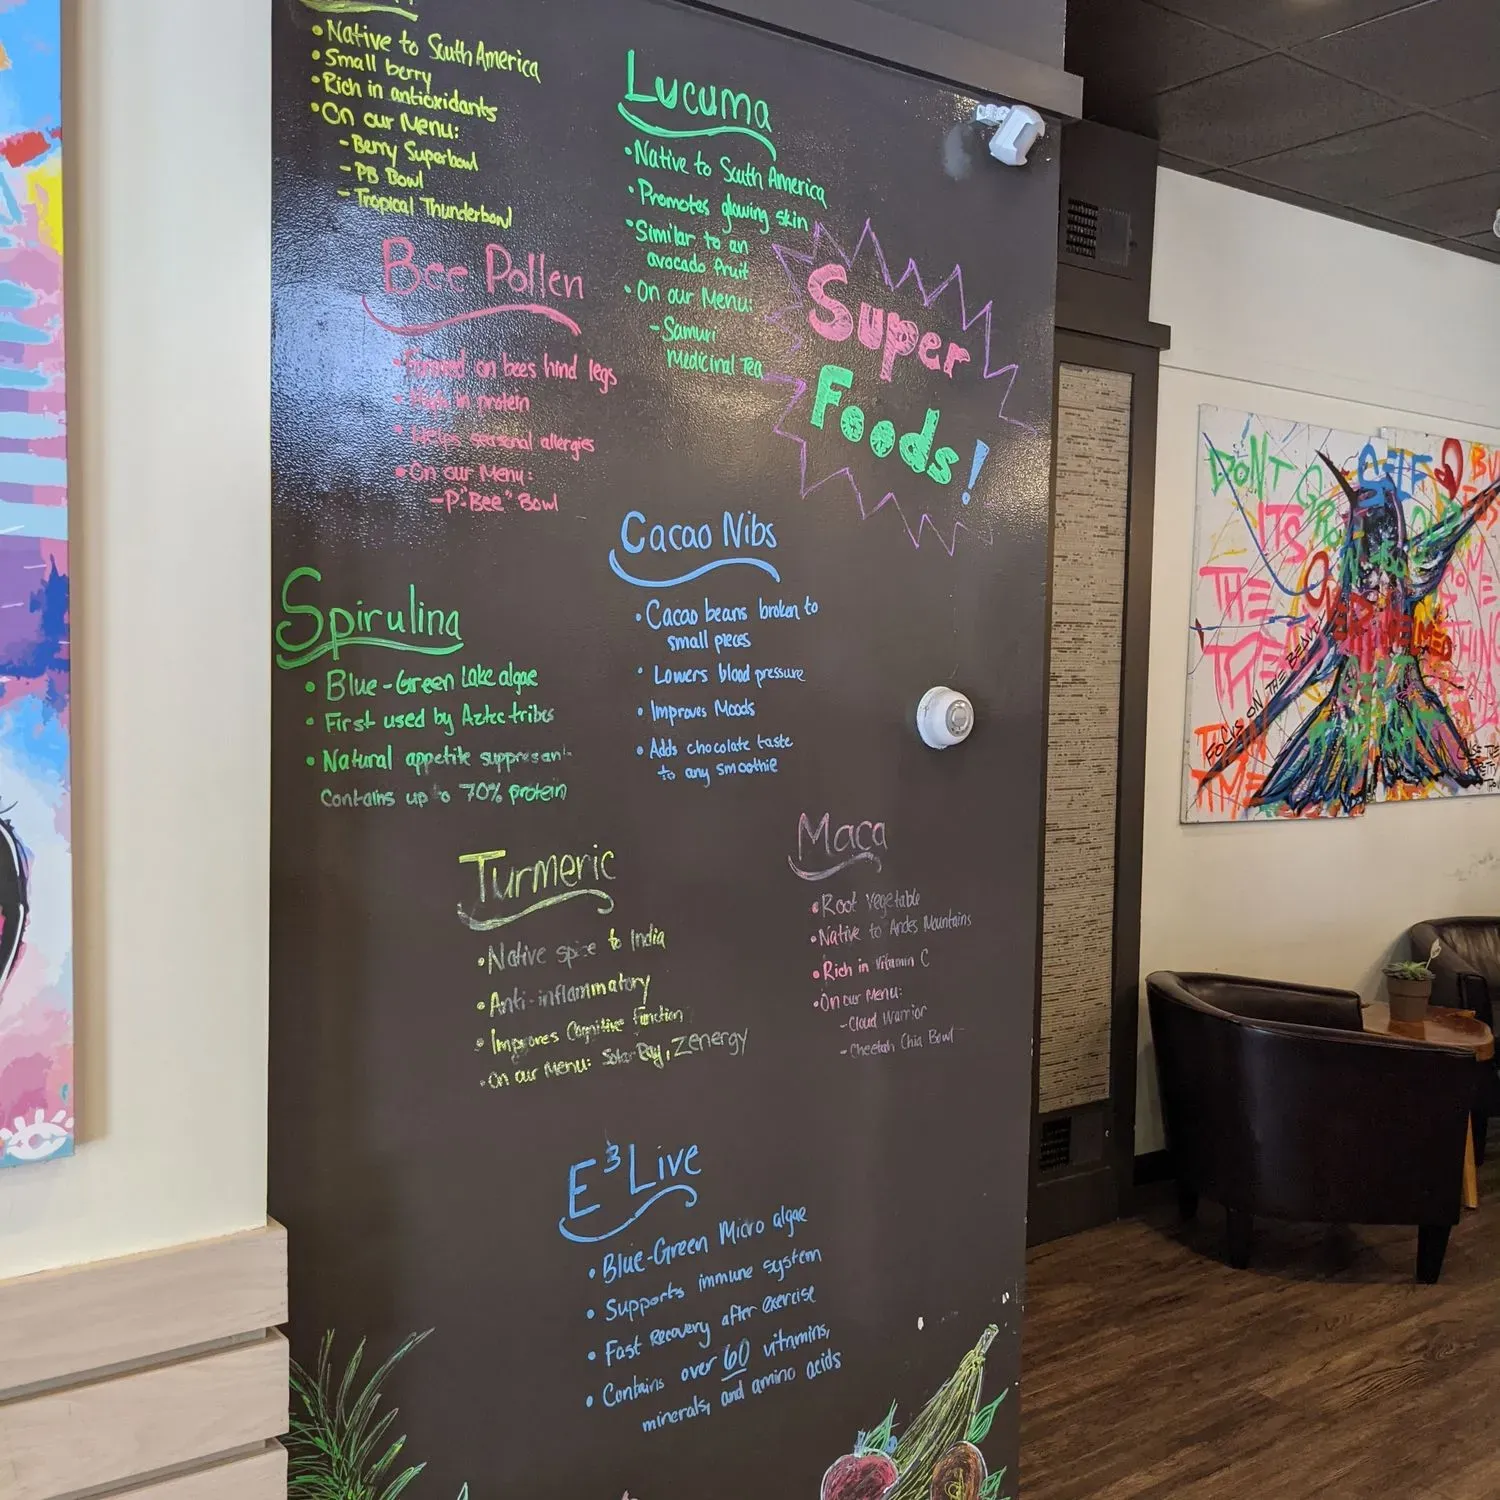 Native to South America
Small berry
Rich in antioxidants
On our Menu:
- Berry Superbowl
- PB Bowl
- Tropical Thunderbowl
Lucuma
Native to South America
Promotes glowing skin
Similar to an
avocado fruit
On our Menu:
- Samuri
Medicinal Tea
Super
Foods!
Bee Pollen
Formed on bees hind legs
High in protein
Helps seasonal allergies
On our Menu:
- P."Bee" Bowl
Cacao Nibs
Cacao beans broken to
small pieces
Lowers blood pressure
Improves Moods
Adds chocolate taste
to any smoothie
Spirulina
Blue-Green Lake algae
First used by Aztec tribes
Natural appetite suppresant
Contains up to 70% protein
Turmeric
Native spice to India
Anti-inflammatory
Improves Cognitive Function
On our Menu: Solar Bay, Zenergy
Maca
Root vegetable
Native to Andes Mountains
Rich in Vitamin C
On our Menu:
- Cloud Warrior
- Cheetah Chia Bowl
E³Live
Blue-Green Micro algae
Supports immune system
Fast Recovery after exercise
Contains over 60 vitamins,
minerals, and amino acids
DONT
SELF
ITS
THE
FOCUS ON THE
TIME